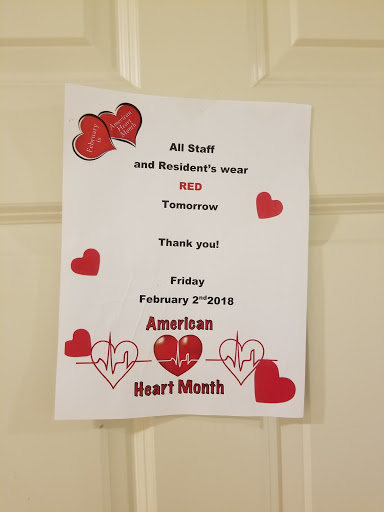 February
is
American
Heart
Month
All Staff
and Resident's wear
RED
Tomorrow
Thank you!
Friday
February 2nd2018
American
Heart Month